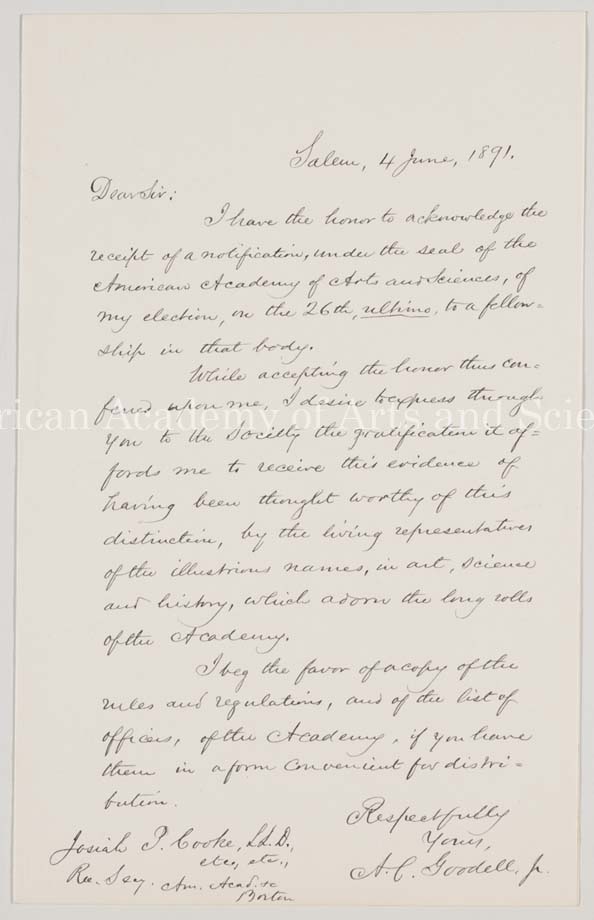 Salem, 4 June, 1891.
Dear Sir:
I have the honor to acknowledge the
receipt of a notification, under the seal of the
American Academy of Arts and Sciences, of
my election, on the 26th, ultimo, to a fellow=
ship in that body.
While accepting the honor thus con=
ferred upon me, I desire to express through
you to the Society the gratification it af=
fords me to receive this evidence of
having been thought worthy of this
distinction, by the living representatives
of the illustrious names, in art, science
and history, which adorn the long rolls
of the Academy.
I beg the favor of a copy of the
rules and regulations, and of the list of
officers, of the Academy, if you have
them in a form convenient for distri=
bution.
Respectfully
Yours,
A. C. Goodell, jr.
Josiah P. Cooke, LL.D.,
etc., etc.,
Rec. Secy. Am. Acad. &c
Boston
rican Academy of Arts and Scie